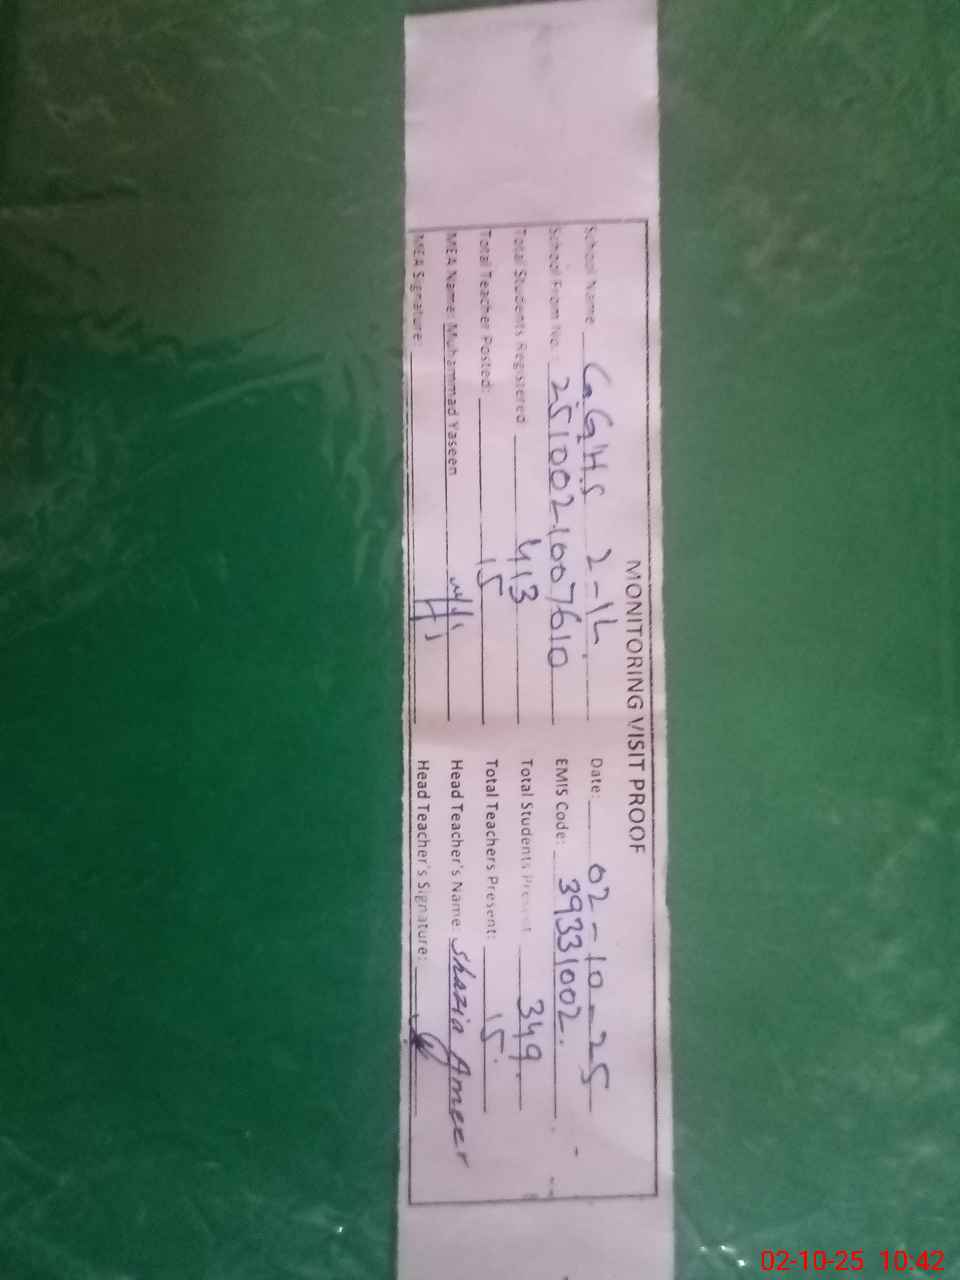 MONITORING VISIT PROOF
School Name GGHS 2-1L. Date: 02-10-25
School From No. 2510021007610 EMIS Code: 39331002.
Total Students Registered 413 Total Students Present 349.
Total Teacher Posted: 15 Total Teachers Present: 15.
MEA Name: Muhammad Yaseen Head Teacher's Name: Shazia Ameer
MEA Signature: Head Teacher's Signature:
02-10-25 10:42